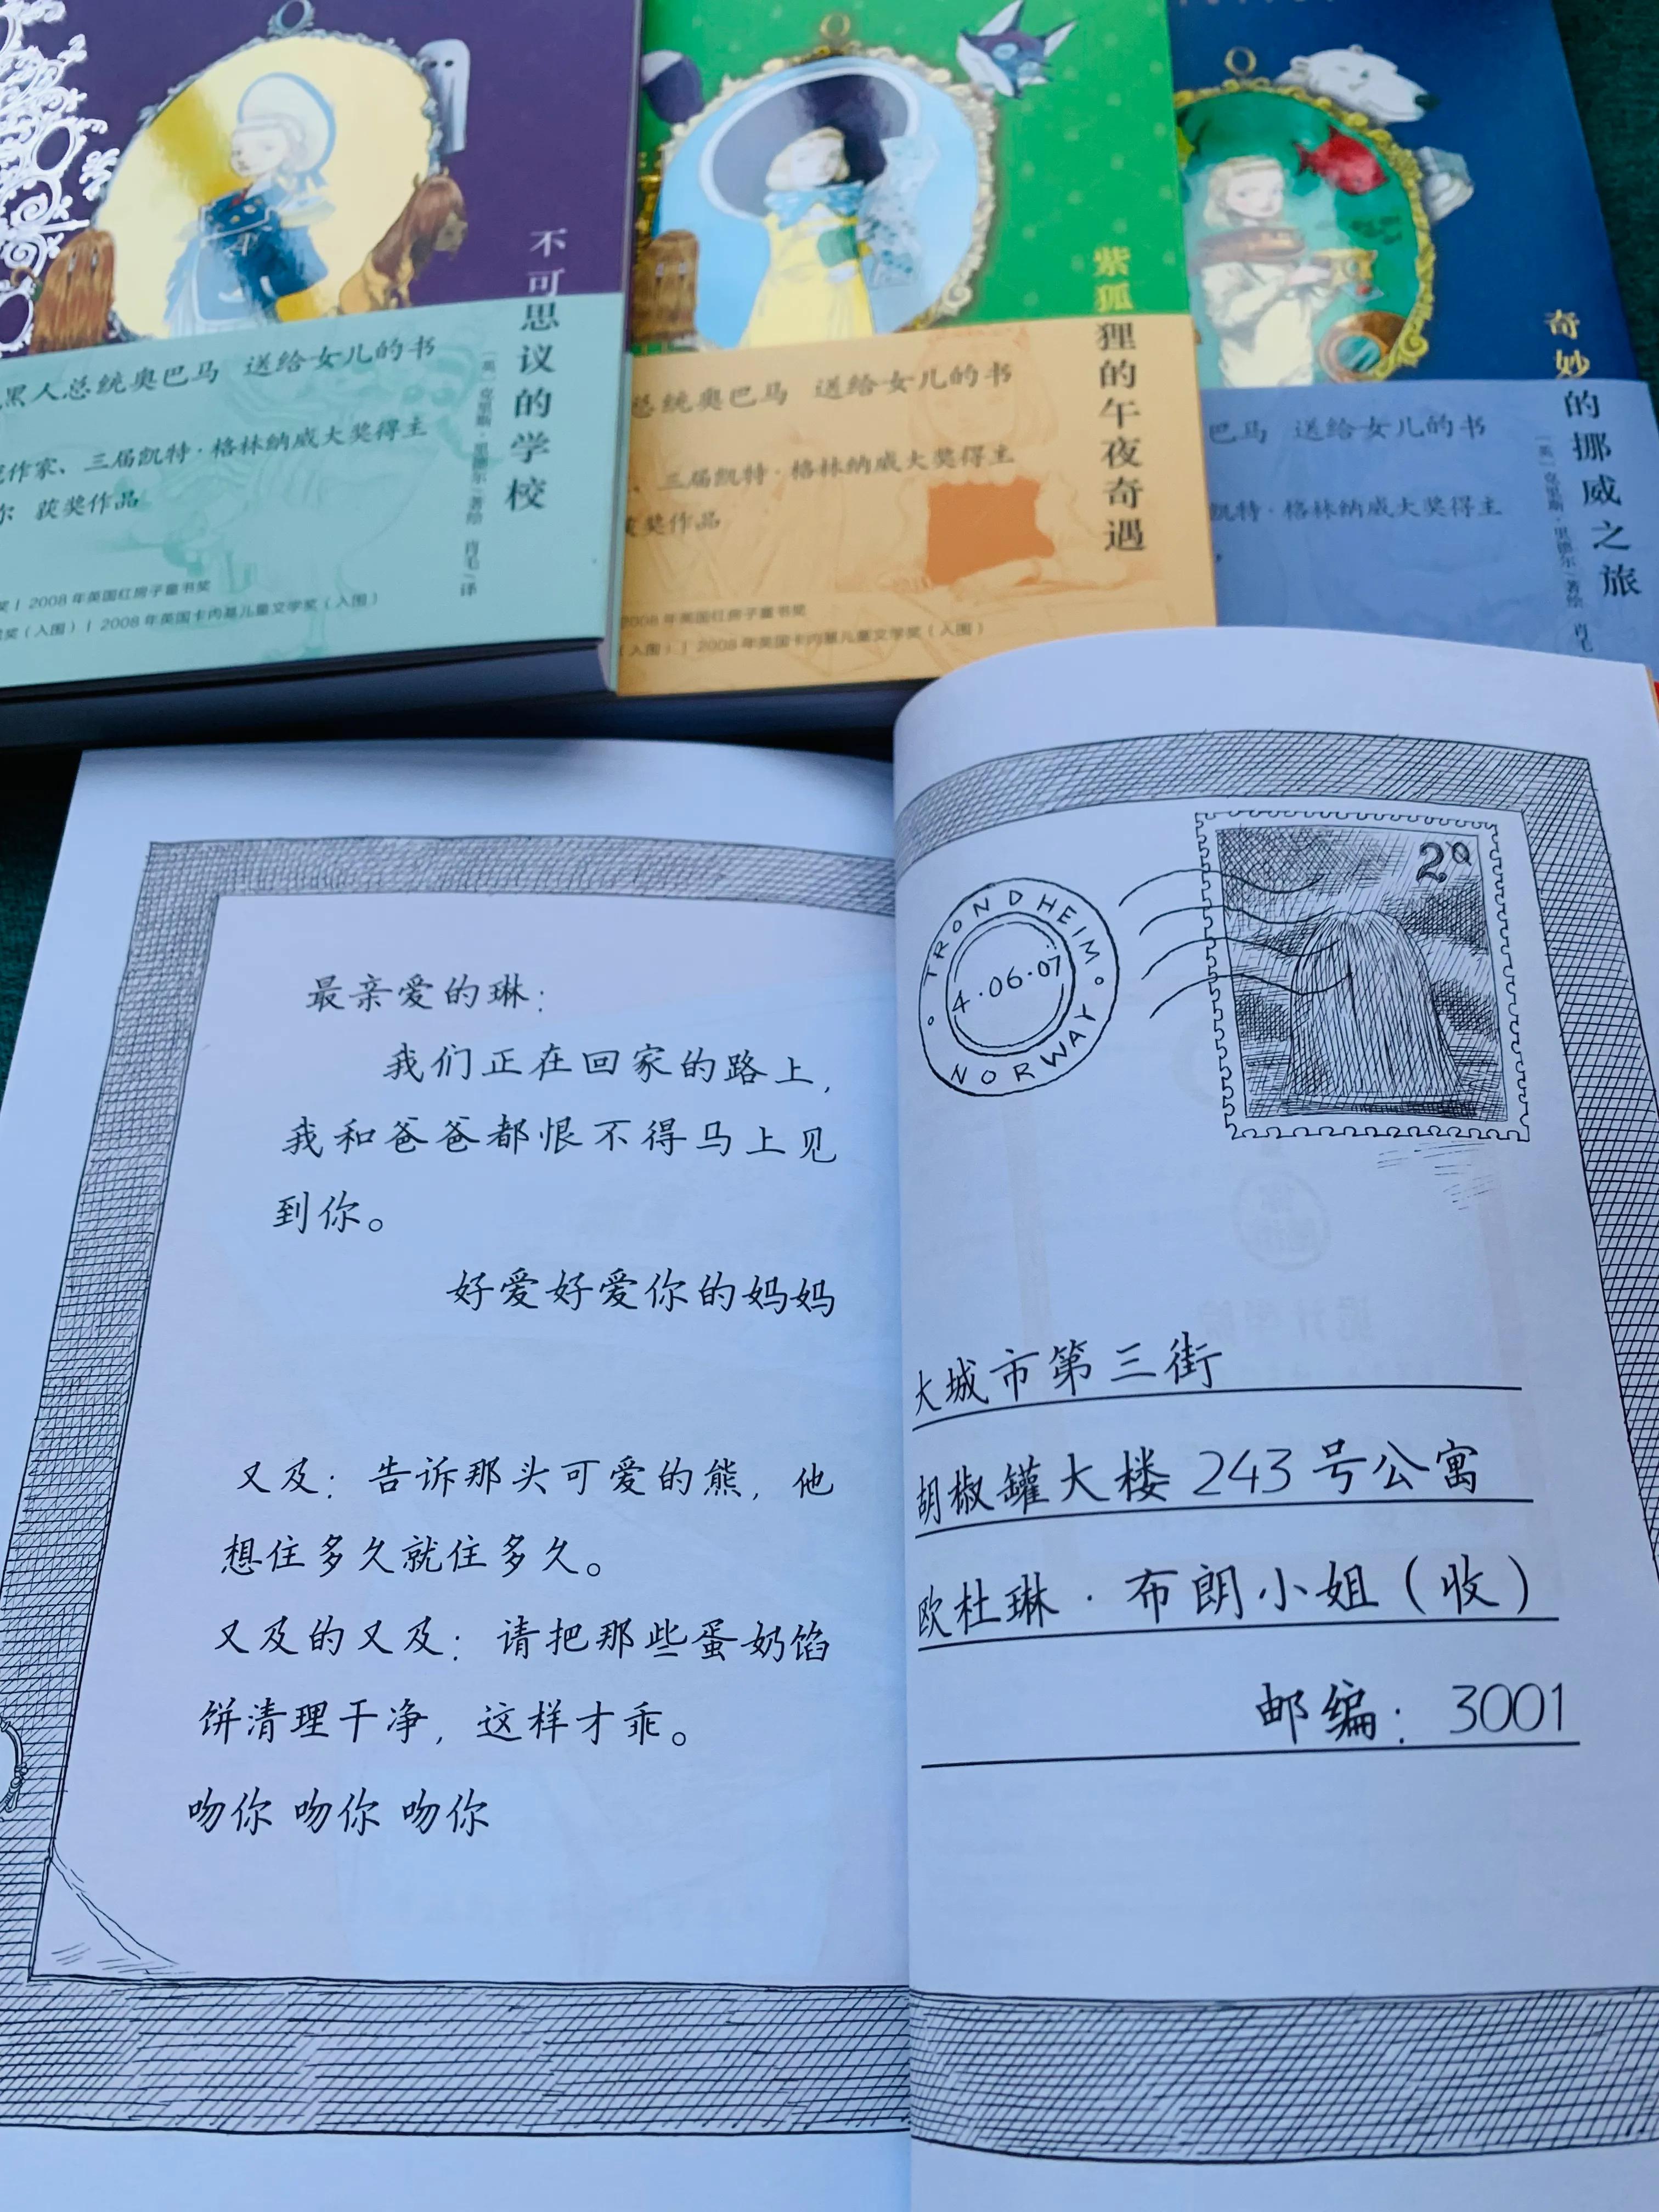 不可思议的学校
[英]克里斯·里德尔/著绘 肖毛/译
黑人总统奥巴马 送给女儿的书
作家、三届凯特·格林纳威大奖得主
尔 获奖作品
奖 | 2008年英国红房子童书奖
奖（入围） | 2008年英国卡内基儿童文学奖（入围）
紫狐狸的午夜奇遇
总统奥巴马 送给女儿的书
、三届凯特·格林纳威大奖得主
获奖作品
2008年英国红房子童书奖
（入围） | 2008年英国卡内基儿童文学奖（入围）
奇妙的挪威之旅
[英]克里斯·里德尔/著绘 肖毛
巴马 送给女儿的书
凯特·格林纳威大奖得主
最亲爱的琳：
我们正在回家的路上，
我和爸爸都恨不得马上见
到你。
好爱好爱你的妈妈
又及：告诉那头可爱的熊，他
想住多久就住多久。
又及的又及：请把那些蛋奶馅
饼清理干净，这样才乖。
吻你 吻你 吻你
TRONDHEIM
4·06·07
NORWAY
大城市第三街
胡椒罐大楼 243 号公寓
欧杜琳·布朗小姐（收）
邮编：3001